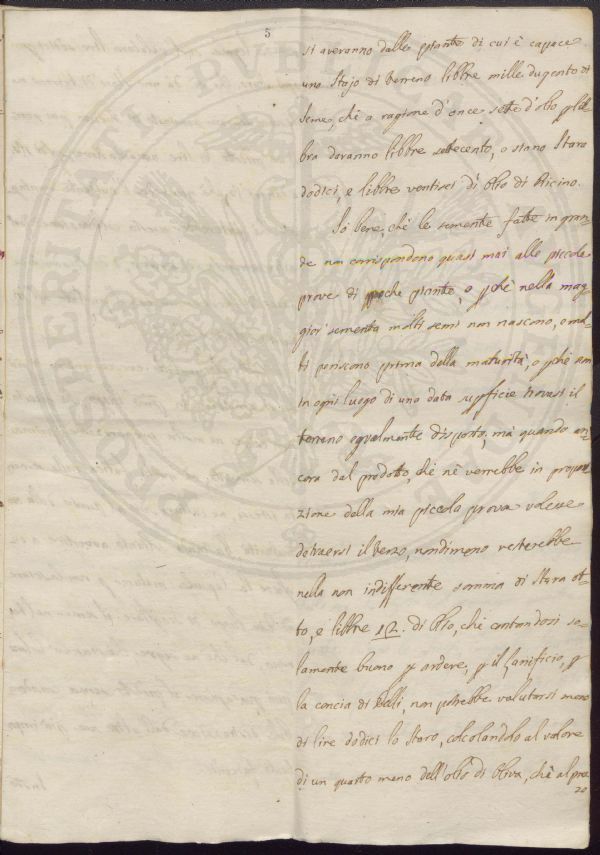 5
si averanno dalle piante di cui è capace
uno Stajo di terreno libbre mille dugento di
seme, chè a ragione d'once sette d'olio p lib
bra daranno libbre settecento, o siano Stara
dodici, e libbre ventisei di Olio di Ricino.
Sò bene, chè le semente fatte in gran-
de non corrispondono quasi mai alle piccole
prove di poche piante, o pchè nella mag
gior sementa molti semi non nascono, o mol-
ti periscono prima della maturità, o pchè non
in ogni luogo di una data supficie trovasi il
terreno egualmente disposto, mà quando an-
cora dal prodotto, chè nè verrebbe in propor
zione della mia piccola prova volesse
detraersi il terzo, nondimeno resterebbe
nella non indifferente somma di Stara ot-
to, e libbre 12. di Olio, chè contandosi so-
lamente buono p ardere, p il Lanificio, p
la concia di Pelli, non potrebbe valutarsi meno
di lire dodici lo Staro, calcolandolo al valore
di un quarto meno dell'olio di Oliva, chè al pre
zo